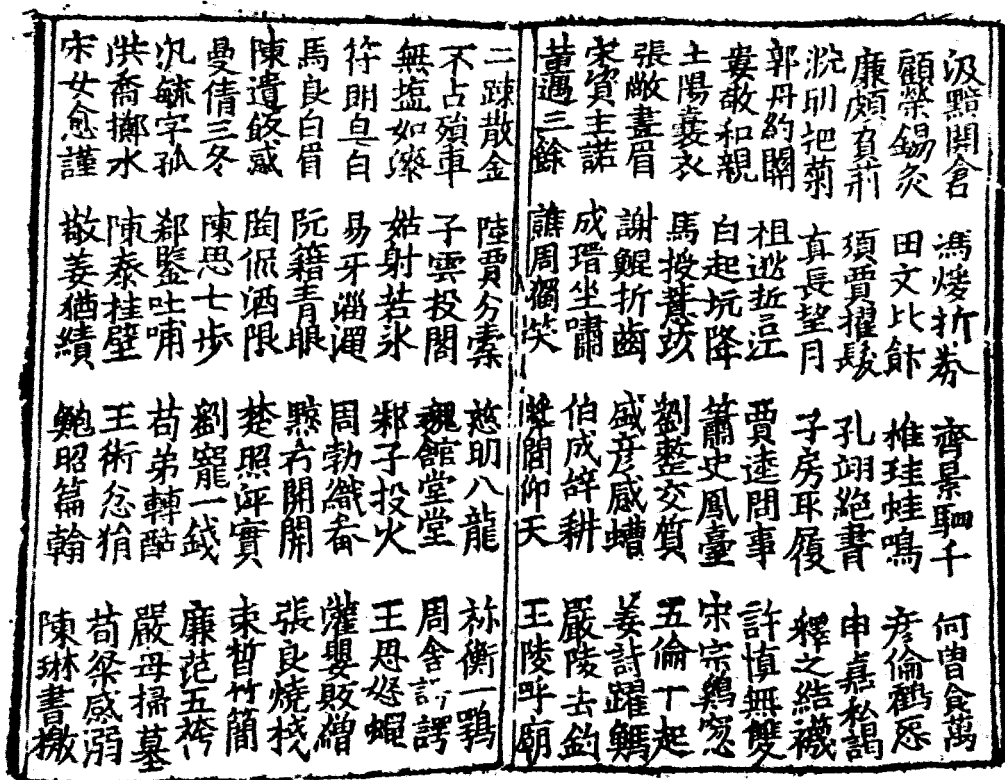 汲黯開倉 馮煖折券 齊景駟千 何曾食萬
顧榮錫炙 田文比飯 稚珪蛙鳴 彦倫鶴怨
廉頗負荊 須賈擢髮 孔翊絶書 申嘉私謁
淵明把菊 真長望月 子房取履 釋之結襪
郭丹約關 祖逖誓江 賈逵問事 許慎無雙
婁敬和親 白起坑降 簫史鳳臺 宋宗鷄窓
王陽囊衣 馬援薏苡 劉整交質 五倫十起
張敞畫眉 謝鯤折齒 盛彦感螬 姜詩躍鯉
宗資主諾 成瑨坐嘯 伯成辞耕 嚴陵去釣
董遇三餘 譙周獨笑 將閭仰天 王陵呼廟
二疎散金 陸賈分橐 慈明八龍 祢衡一鶚
不占殞車 子雲投閣 魏舘堂堂 周舍諤諤
無塩如漆 姑射若氷 邾子投火 王思怒蠅
苻朗皁白 易牙淄澠 周勃織 灌嬰販繒
馬良白眉 阮籍青眼 黥布開關 張良燒棧
陳遺飯感 陶侃酒限 楚昭萍實 束晳竹簡
曼倩三冬 陳思七歩 劉寵一錢 廉范五袴
氾毓字孤 郗鑒吐哺 苟弟轉酷 嚴母掃墓
洪喬擲水 陳泰挂壁 王術忿狷 荀粲感溺
宋女愈謹 敬姜猶績 鮑昭篇翰 陳琳書檄